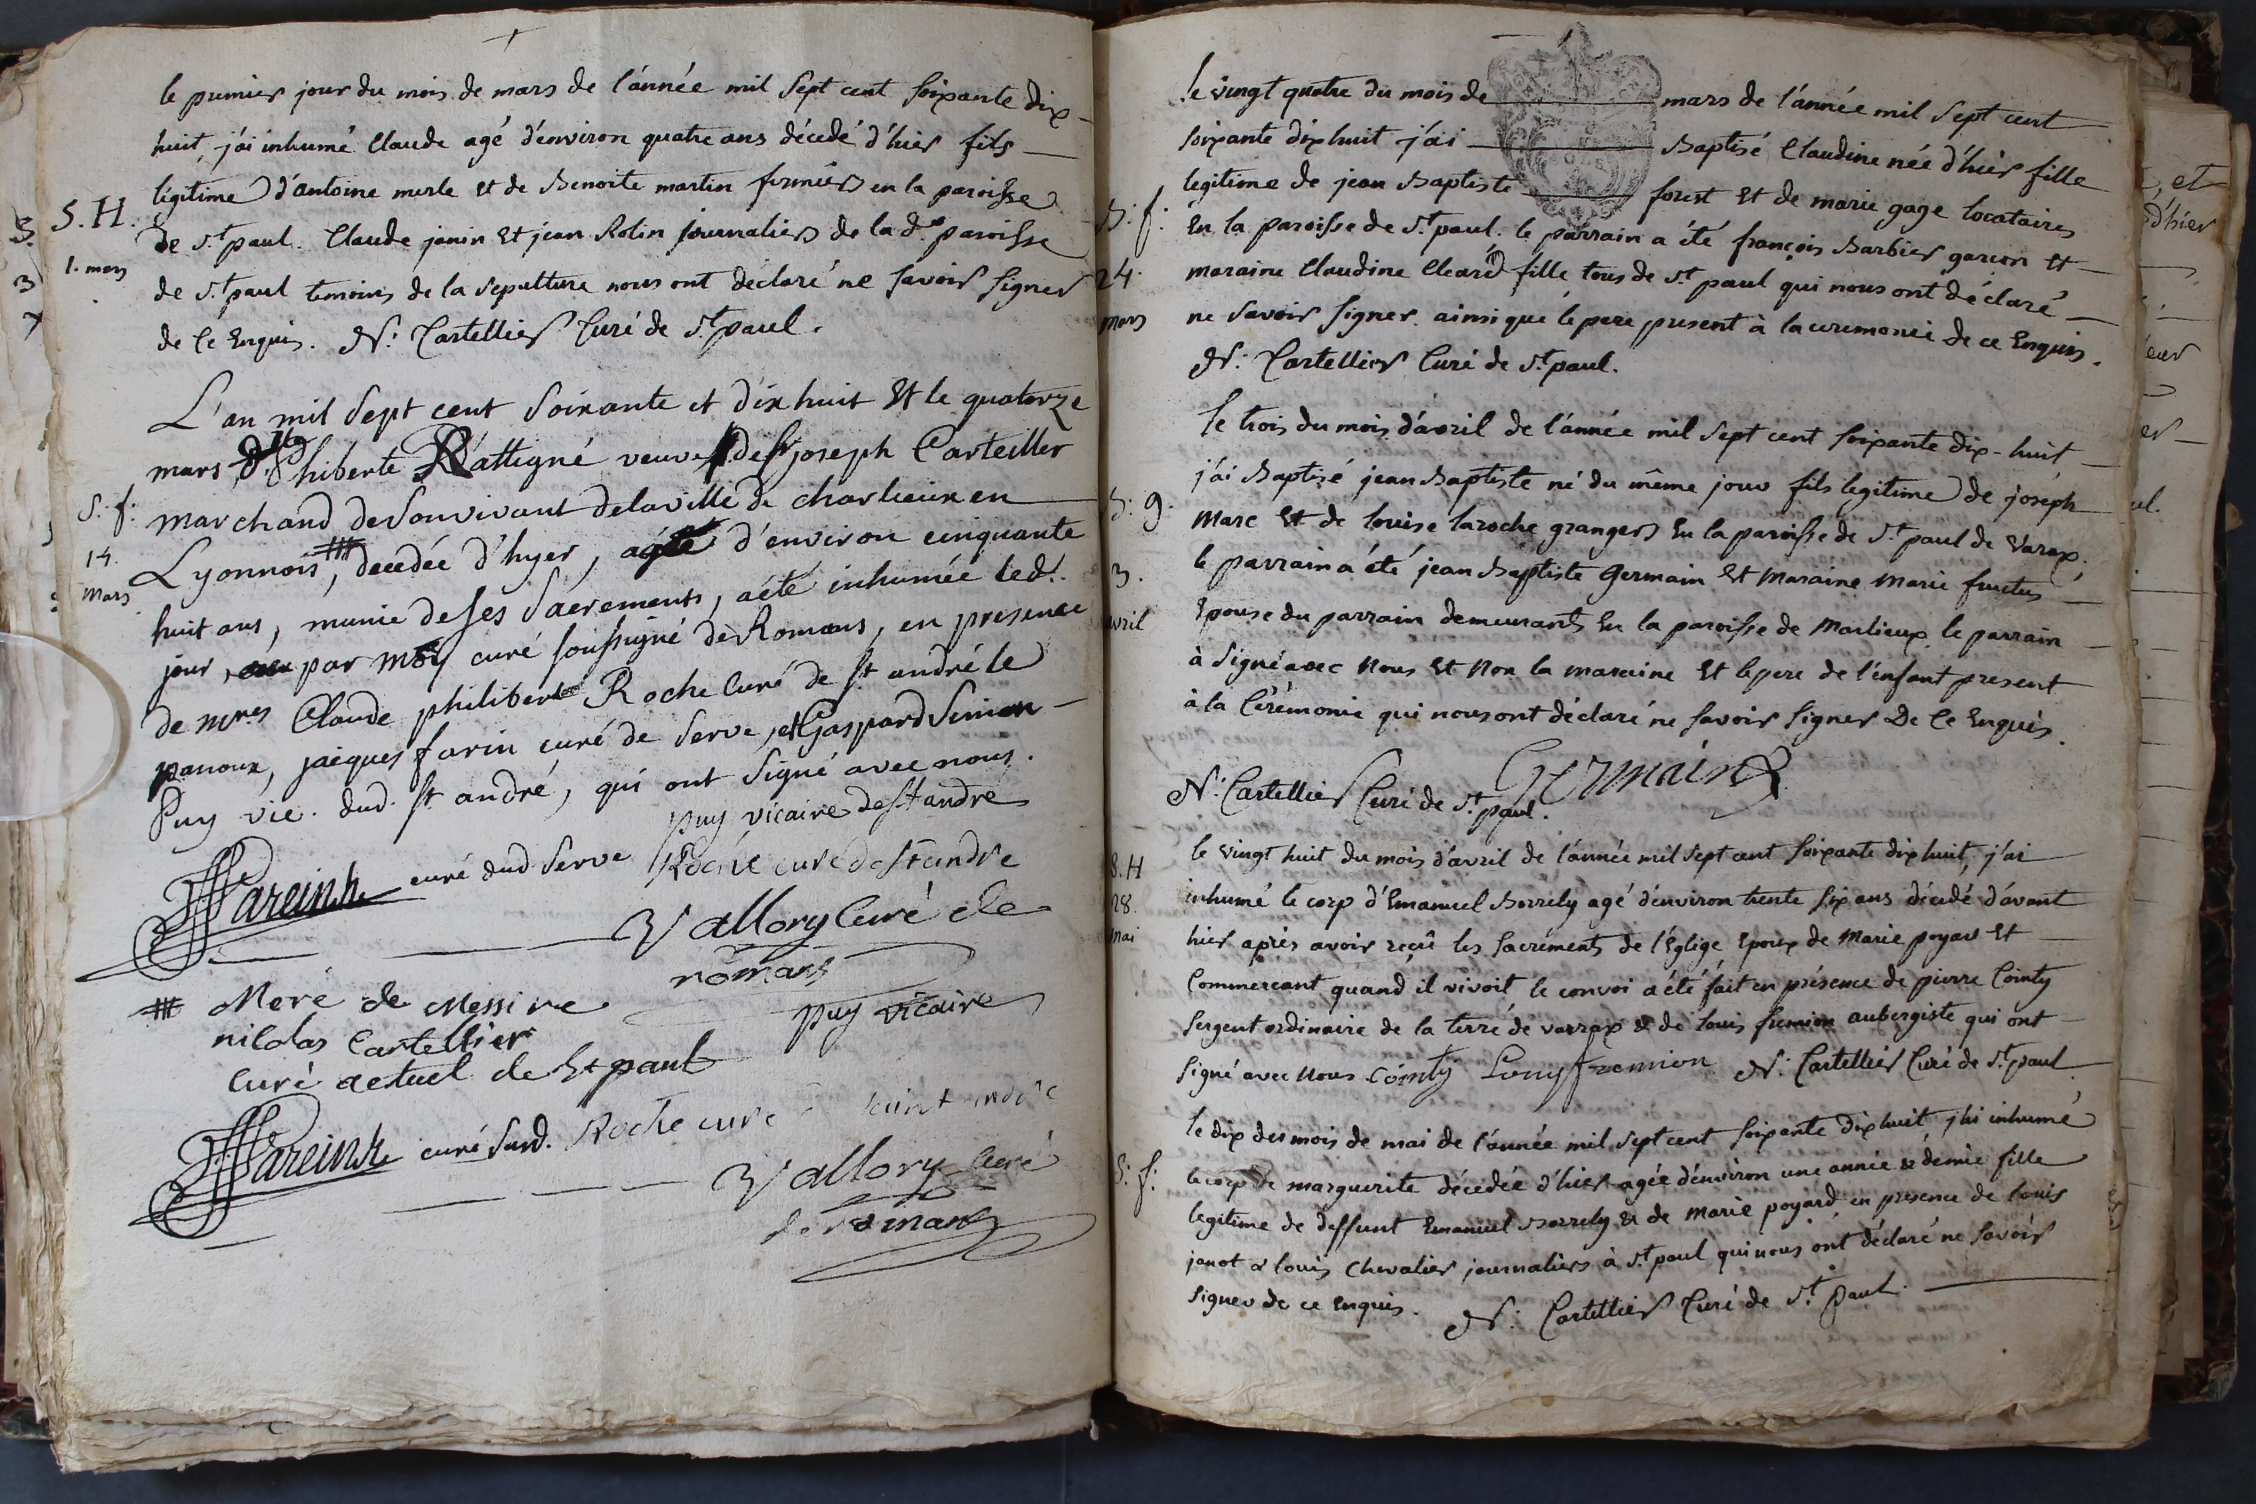 le premier jour du mois de mars de l'année mil sept cent soixante dix-
huit, j'ai inhumé Claude agé d'environ quatre ans décedé d'hier fils
légitime d'antoine merle et de Benoite martin fermiers en la paroisse
de St. paul. Claude janin et jean Rolin journaliers de la de. paroisse
de St. paul temoins de la sepulture nous ont déclaré ne savoir signer
de Ce Enquis. N: Cartellier Curé de St paul.
S. H.
1. mars
L'an mil sept cent soixante et dix huit et le quatorze
mars, dlle phiberte Rattigné veuve de sr joseph Carteiller
marchand de son vivant de la ville de charlieux en
Lyonnois ⧻, decedée d'hyer, agée d'environ cinquante
huit ans, munie de ses sacrements, a été inhumée led.
jour, par moy curé soussigné de Romans, en presence
de mres Claude philibert Roche Curé de st andré le
panoux, jacques farin curé de Serve, et Gaspard Simon
Puy vic. dud. st andré, qui ont signé avec nous.
S. f.
14.
mars
puy vicaire de st andré
Fareinh curé dud Serve Roche curé de st andré
Vallory Curé de
romans
⧻ Mere de Messire
nicolas Cartellier
Curé actuel de St paul
puy vicaire
Fareinh curé susd. Roche curé
Vallory Curé
de romans
le vingt quatre du mois de mars de l'année mil sept cent
soixante dix huit j'ai Baptisé Claudine née d'hier fille
legitime de jean Baptiste forest et de marie gage locataires
En la paroisse de St. paul. le parrain a été françois Barbier garcon et
maraine Claudine fille tous de St paul qui nous ont déclaré
ne savoir signer. ainsi que le pere present à la ceremonie de ce Enquis.
N: Cartellier Curé de St. paul.
B: f:
24.
mars
le trois du mois d'avril de l'année mil sept cent soixante dix-huit
j'ai Baptisé jean Baptiste né du même jour fils legitime de joseph
Marc et de louise laroche grangers En la paroisse de St. paul de Varax;
le parrain a été jean Baptiste Germain et Maraine Marie fructus
Epouse du parrain demeurants En la paroisse de Marlieux le parrain
à signé avec Nous et Non la maraine et le pere de l'enfant present
à la Cérémonie qui nous ont déclaré ne savoir signer De Ce Enquis.
B: g:
3.
avril
Germain
N: Cartellier Curé de St. paul.
le vingt huit du mois d'avril de l'année mil sept cent soixante dix huit, j'ai
inhumé le corp d'Emanuel Borrely agé d'environ trente six ans décedé d'avant
hier après avoir reçû les sacrements de l'église, Epoux de Marie poyard et
Commercant quand il vivoit le convoi a été fait en présence de pierre Cointy
sergent ordinaire de la terre de varrax & de louis fremion aubergiste qui ont
signé avec Nous Cointy Louis fremion N: Cartellier Curé de St. paul
S. H
28.
mai
le dix des mois de mai de l'année mil sept cent soixante dix huit j'ai inhumé
le corp de marguerite décedée d'hier agée d'environ une année & demie fille
legitime de deffunt Emanuel Borrely & de Marie poyard, en presence de louis
janot & louis Chevalier journaliers à St. paul qui nous ont déclaré ne savoir
signer de ce enquis. N: Cartellier Curé de St paul.
S: f: